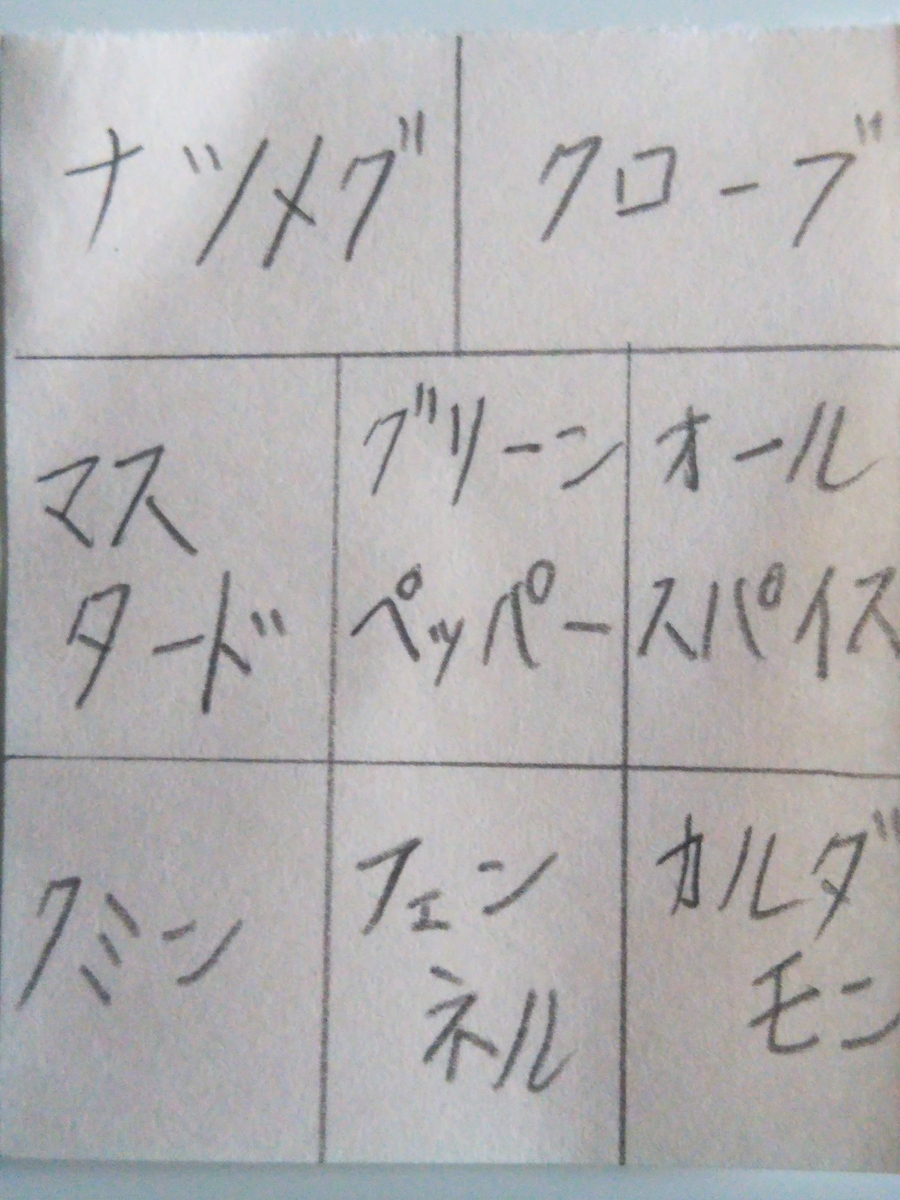 ナツメグ
クローブ
マス
タード
グリーン
ペッパー
オール
スパイス
クミン
フェン
ネル
カルダ
モン